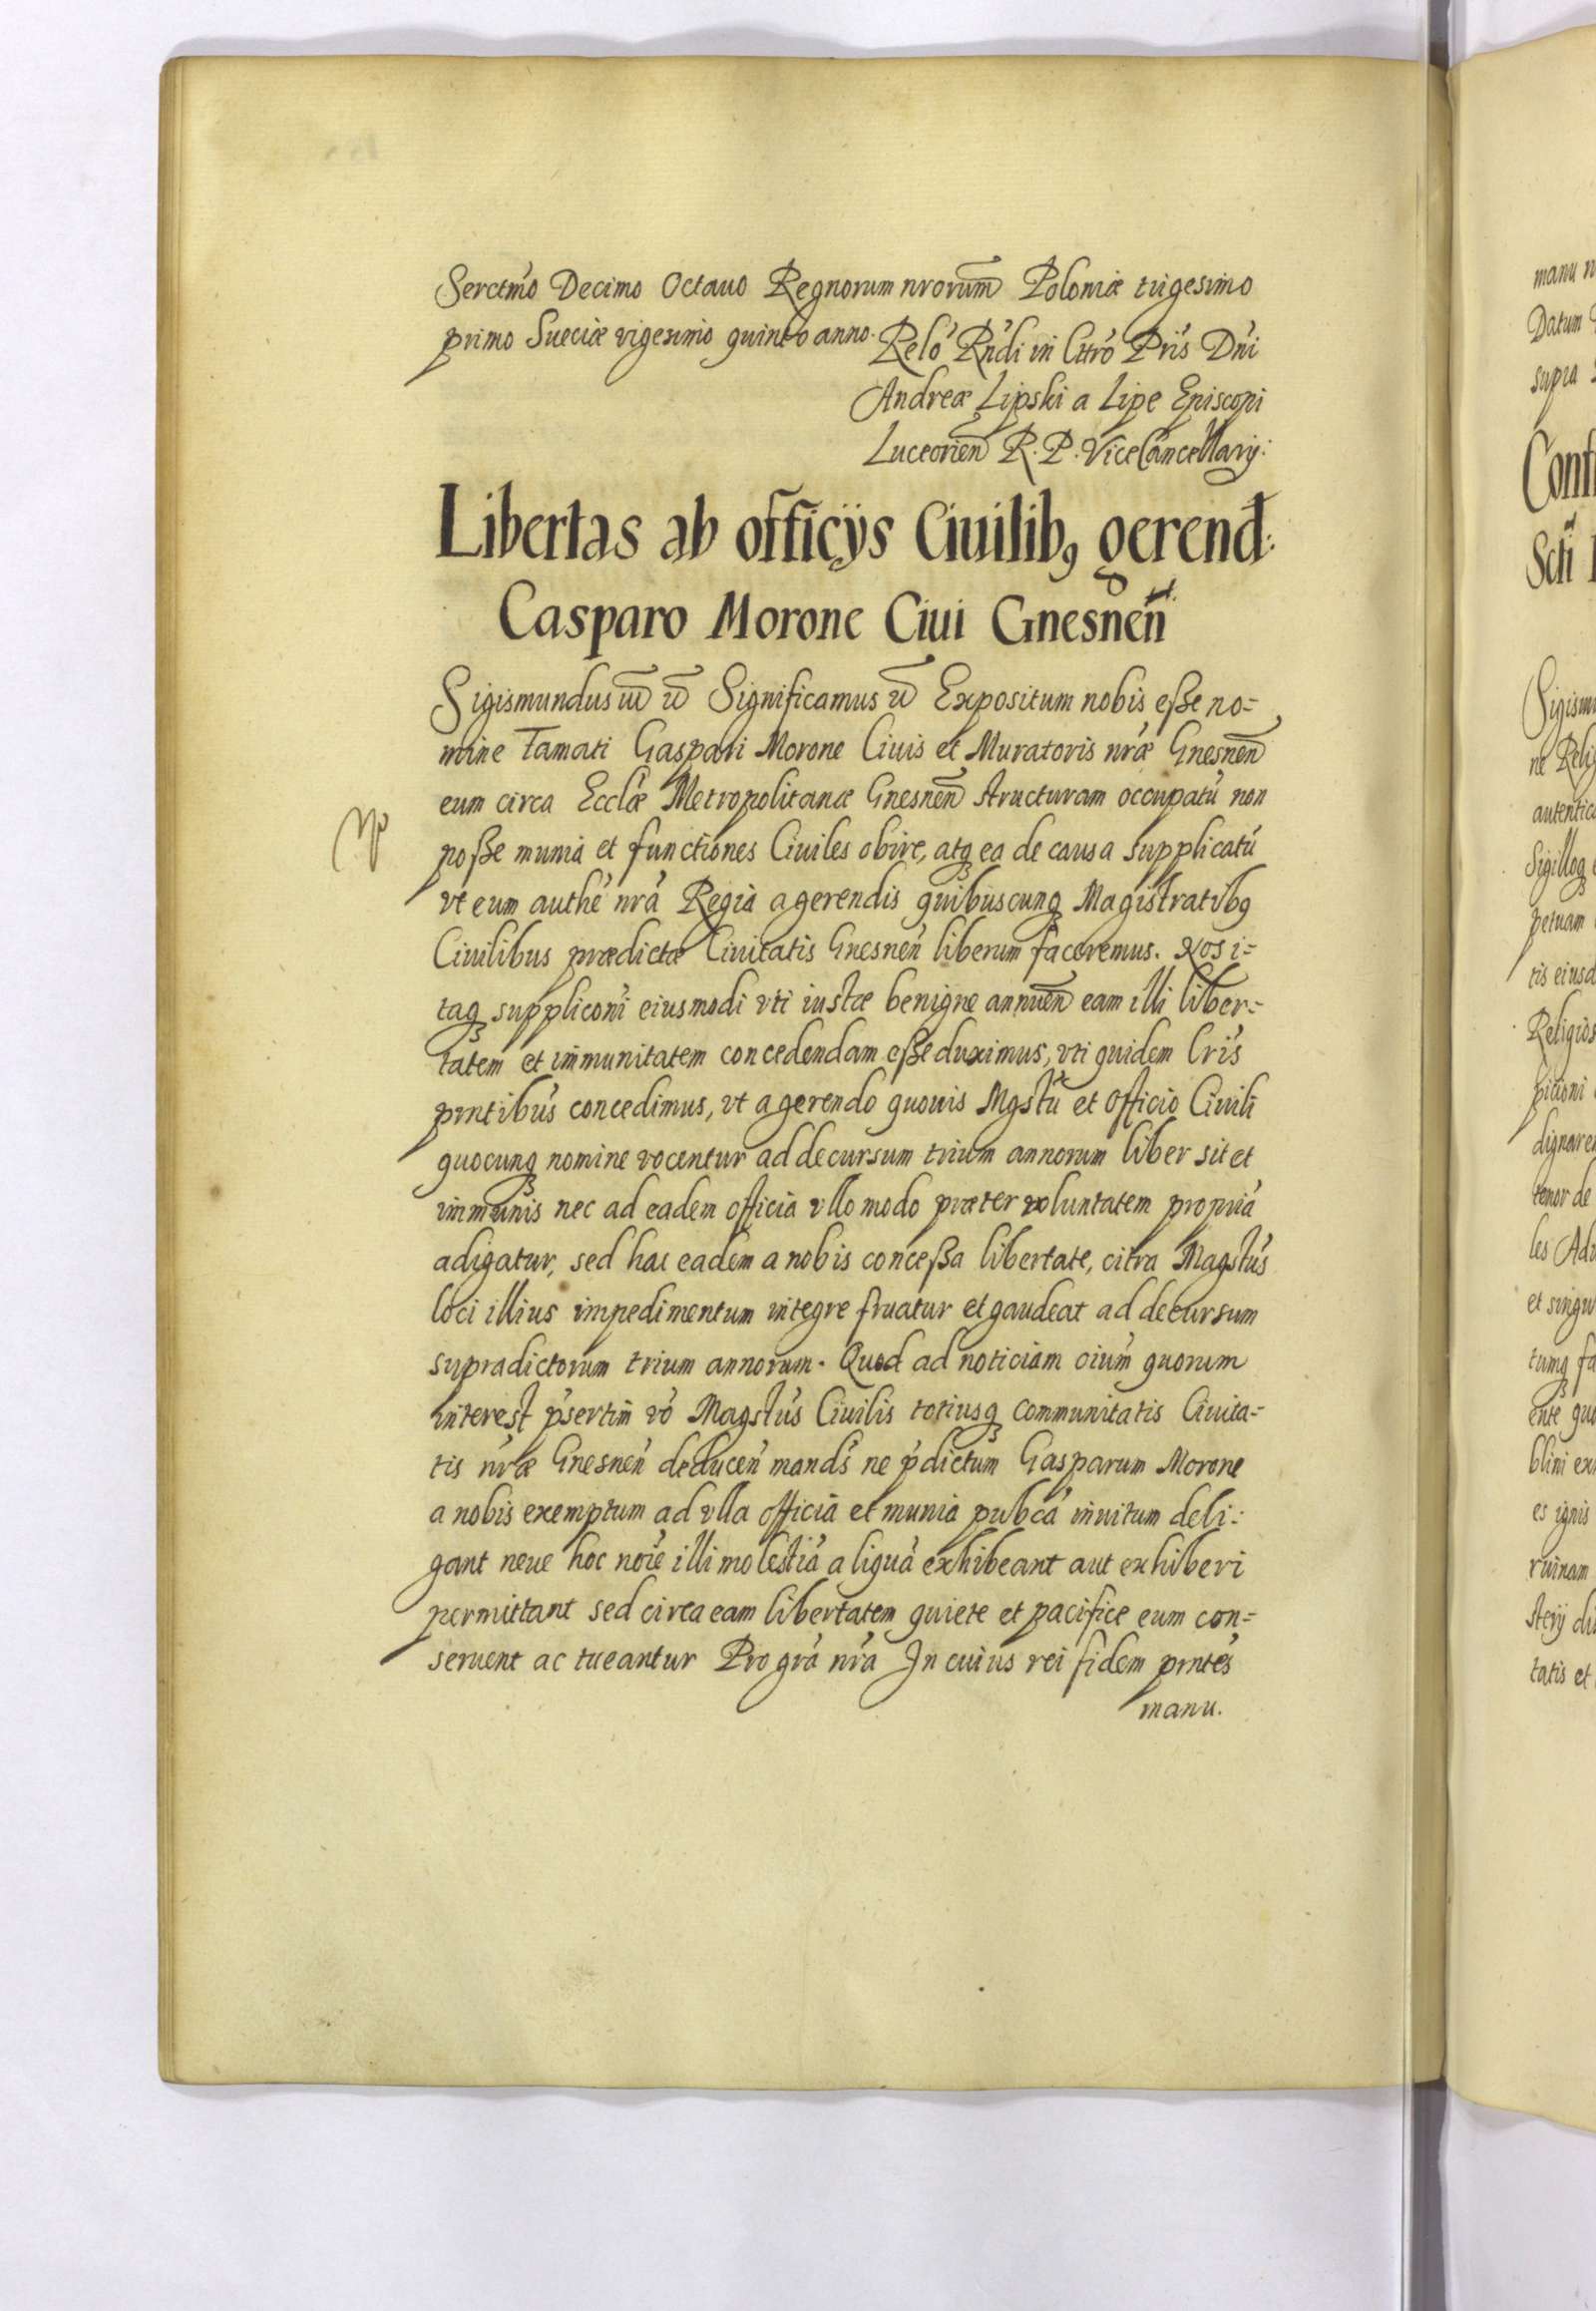 Serctmo Decimo Octauo Regnorum nrorum Poloniæ trigesimo
primo Sueciæ vigesimo quinto anno.
Relo Rndi in Chro Pris Dni
Andreæ Lipski a Lipe Episcopi
Luceorien R. P. ViceCancellarij:
Libertas ab officijs Ciuilib9 gerend:
Casparo Morone Ciui Gnesnen
Sigismundus Significamus Expositum nobis eße no=
mine Famati Gaspari Morone Ciuis et Muratoris nræ Gnesnen
eum circa Ecclæ Metropolitanæ Gnesnen structuram occupatu non
poße munia et functiones Ciuiles obire, atq ea de causa supplicatu
vt eum authe nra Regia a gerendis quibuscunq Magistratib9
Ciuilibus prædictæ Ciuitatis Gnesnen liberum faceremus. Nos i=
taq suppliconi eiusmodi vti iustæ benigne annuen eam illi liber=
tatem et immunitatem concedendam eße duximus, vti quidem lris
prntibus concedimus, vt a gerendo quouis Mgstu et officio Ciuili
quocunq nomine vocentur ad decursum trium annorum liber sit et
immunis nec ad eadem officia vllo modo præter voluntatem propria
adigatur, sed hac eadem a nobis conceßa libertate, citra Magstus
loci illius impedimentum integre fruatur et gaudeat ad decursum
supradictorum trium annorum. Quod ad noticiam oium quorum
interest psertim vo Magstus Ciuilis totiusq communitatis Ciuita=
tis nræ Gnesnen deducen mands ne pdictum Gasparum Morone
a nobis exemptum ad vlla officia et munia pubca inuitum deli=
gant neue hoc noie illi molestia aliqua exhibeant aut exhiberi
permittant sed circa eam libertatem quiete et pacifice eum con=
seruent ac tueantur Pro gra nra In cuius rei fidem prntes
manu.
manu
Datum
supra
Sigism
autentic
Sigilloq
petuam
tis eiusd
Religios
pitioni
tenor de
les Ad
et singu
tumq fa
ente quo
blini ex
es ignis
ruinam
sterij
tatis et